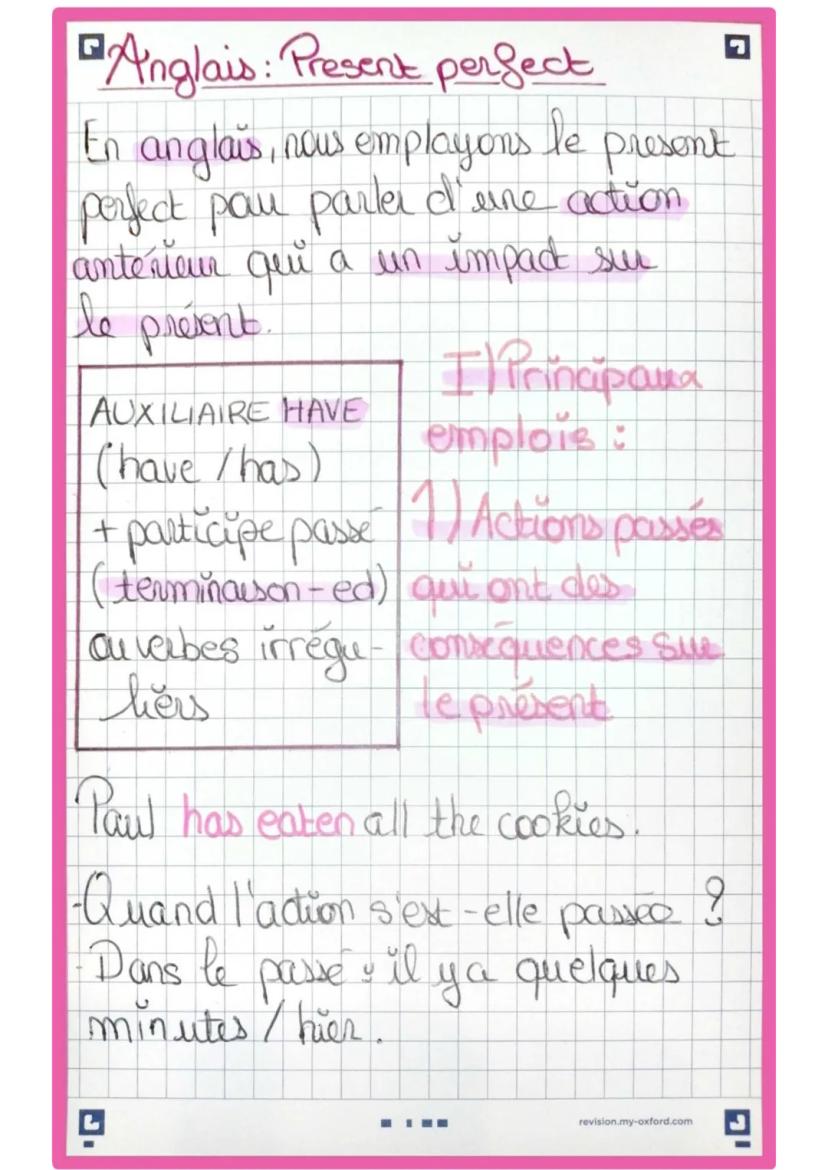 Anglais : Present perfect
En anglais, nous employons le present
perfect pour parler d'une action
antérieur qui a un impact sur
le présent.
AUXILIAIRE HAVE
(have / has)
+ participe passé
(terminaison - ed)
ou verbes irrégu-
liers
I) Principaux
emplois :
1) Actions passés
qui ont des
conséquences sur
le présent
Paul has eaten all the cookies.
-Quand l'action s'est-elle passée ?
-Dans le passé : il y a quelques
minutes / hier.
revision.my-oxford.com